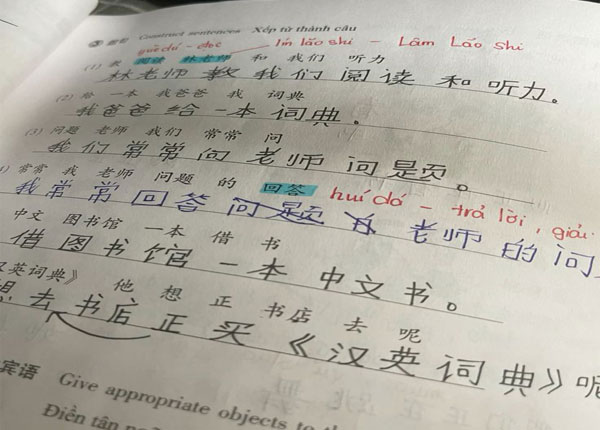 Construct sentences Xếp từ thành câu
yuèdú - đọc lín lǎo shi - Lâm Láo shi
(1) 教 阅读 林老师 和 我们 听力
林老师教我们阅读和听力。
(2) 给 一本 我爸爸 我 词典
我爸爸给一本词典。
(3) 问题 老师 我们 常常 问
我们常常问老师问题。
常常 我 老师 问题 的 回答 huí dá - trả lời, giải
我常常回答问题 老师的问
中文 图书馆 一本 借 书
借图书馆一本中文书。
汉英词典》 他 想 正 书店 去 呢
想去书店正买《汉英词典》呢
宾语 Give appropriate objects to
Điền tân